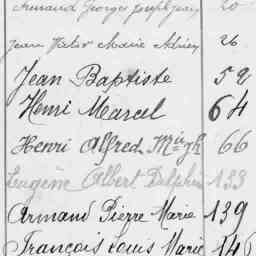 Armand Georges Joseph Jean 20
Jean Victor Marie Adrien 26
Jean Baptiste 59
Henri Marcel 64
Henri Alfred 66
Eugène Albert Delphin 133
Armand Pierre Marie 139
François Louis Marie 146